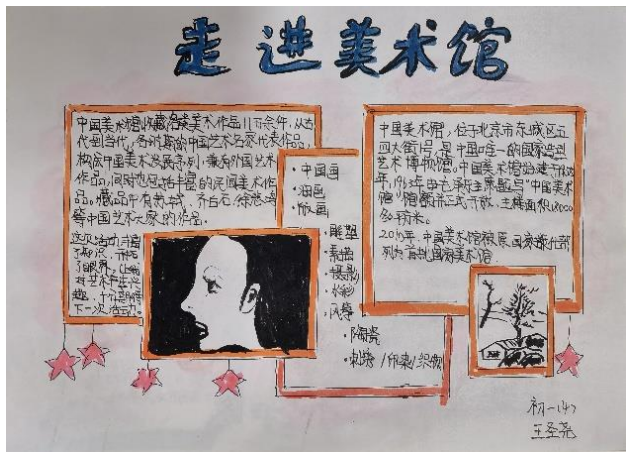 走进美术馆
中国美术馆收藏各类美术作品11万余件，从古
代到当代，各时期的中国艺术名家代表作品，
构成中国美术发展序列，兼有外国艺术
作品，同时也包括丰富的民间美术作
品。藏品中有任伯年、齐白石、徐悲鸿
等中国艺术大家的作品。
这次活动丰富
了知识，开拓
了眼界，让我
对艺术产生兴
趣，十分期待
下一次活动。
·中国画
·油画
·版画
·雕塑
·素描
·摄影
·水彩
·风筝
·陶瓷
·刺绣/印染/织物
中国美术馆，位于北京市东城区五
四大街1号，是中国唯一的国家造型
艺术博物馆。中国美术馆始建于1958
年，1963年由毛泽东主席题写"中国美术
馆"馆额并正式开放，主楼面积18000
多平方米。
中国美术馆被原国家旅行部
列为首批国家美术馆
初一(4)
王圣尧